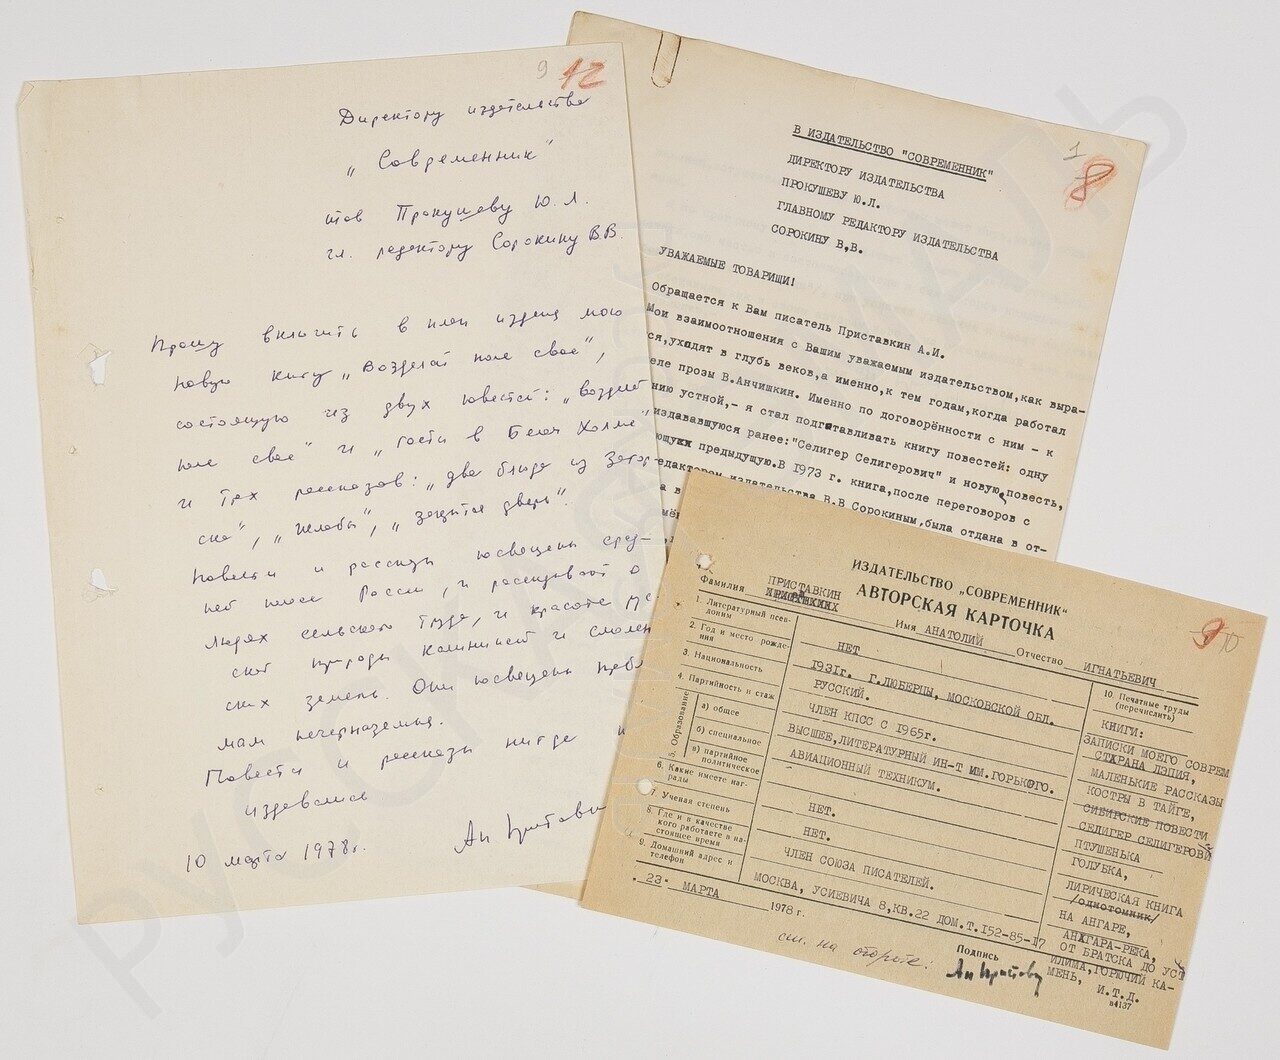 9 12
Директору издательства
„Современник"
тов Прокушеву Ю.Л.
гл. редактору Сорокину В.В.
Прошу включить в план издания мою
новую книгу „Возделай поле свое",
состоящую из двух повестей: „Возделай
поле свое" и „Гости в Белом Холме"
и трех рассказов: „два блюда из
„закрытая дверь".
Повести и рассказы посвещены сред-
ней полосе России, и рассказывают о
людях сельского труда, и красоте рус
ской природы Калининской и Смолен
ских земель. Они посвещены пробле
мам нечерноземья.
Повести и рассказы нигде не
издавались
10 марта 1978г.
Ан Пристав
1 8
В ИЗДАТЕЛЬСТВО "СОВРЕМЕННИК"
ДИРЕКТОРУ ИЗДАТЕЛЬСТВА
ПРОКУШЕВУ Ю.Л.
ГЛАВНОМУ РЕДАКТОРУ ИЗДАТЕЛЬСТВА
СОРОКИНУ В,В.
УВАЖАЕМЫЕ ТОВАРИЩИ!
Обращается к Вам писатель Приставкин А.И.
Мои взаимоотношения с Вашим уважаемым издательством,как выра-
ся,уходят в глубь веков,а именно,к тем годам,когда работал
еле прозы В.Анчишкин. Именно по договорённости с ним - к
нию устной,- я стал подготавливать книгу повестей: одну
издававшуюся ранее:"Селигер Селигерович" и новую повесть,
ющую предыдущую.В 1973 г. книга,после переговоров с
едактором издательства В.В Сорокиным,была отдана в от-
ИЗДАТЕЛЬСТВО „СОВРЕМЕННИК"
АВТОРСКАЯ КАРТОЧКА
9 10
Фамилия ПРИСТАВКИН Имя АНАТОЛИЙ Отчество ИГНАТЬЕВИЧ
1. Литературный псев-
доним НЕТ
2. Год и место рожде-
ния 1931г. Г.ЛЮБЕРЦЫ, МОСКОВСКОЙ ОБЛ.
3. Национальность РУССКИЙ.
4. Партийность и стаж ЧЛЕН КПСС С 1965г.
5. Образование
а) общее ВЫСШЕЕ,ЛИТЕРАТУРНЫЙ ИН-Т ИМ.ГОРЬКОГО.
б) специальное АВИАЦИОННЫЙ ТЕХНИКУМ.
в) партийное
политическое
6. Какие имеете наг-
рады НЕТ.
7 Ученая степень НЕТ.
8. Где и в качестве
кого работаете в на-
стоящее время ЧЛЕН СОЮЗА ПИСАТЕЛЕЙ.
9. Домашний адрес и
телефон МОСКВА, УСИЕВИЧА 8,КВ.22 ДОМ.Т.152-85-17
10. Печатные труды
(перечислить)
КНИГИ:
ЗАПИСКИ МОЕГО СОВРЕМ
СТРАНА ЛЭПИЯ,
МАЛЕНЬКИЕ РАССКАЗЫ
КОСТРЫ В ТАЙГЕ,
СИБИРСКИЕ ПОВЕСТИ
СЕЛИГЕР СЕЛИГЕРОВИ
ПТУШЕНЬКА
ГОЛУБКА,
ЛИРИЧЕСКАЯ КНИГА
/однотомник/
НА АНГАРЕ,
АНГАРА-РЕКА,
ОТ БРАТСКА ДО УСТ
ИЛИМА,ГОРЮЧИЙ КА-
МЕНЬ, И.Т.Д.
23 МАРТА 1978 г.
см. на обороте!
Подпись
Ан Пристав
в4137